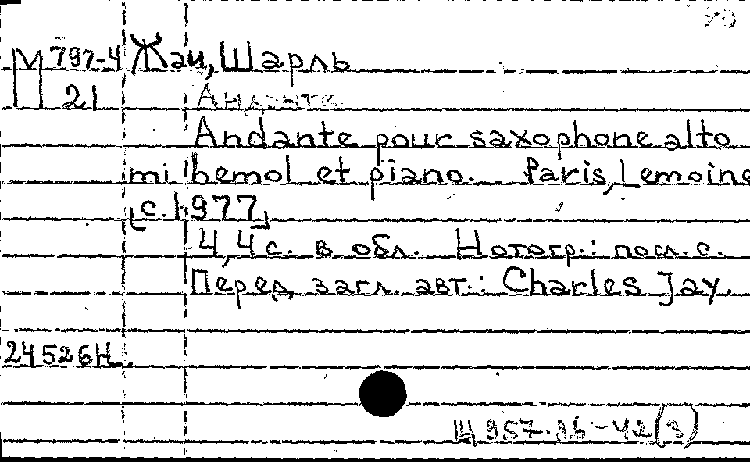 М 797-4 Жаи, Шарль
21 Анданте
Andante pour saxophone alto
mi bemol et piano. Paris, Lemoine
[c. 1977]
4, 4 с. в обл. Нотогр.: посл. с.
Перед загл. авт.: Charles Jay.
24526Н.